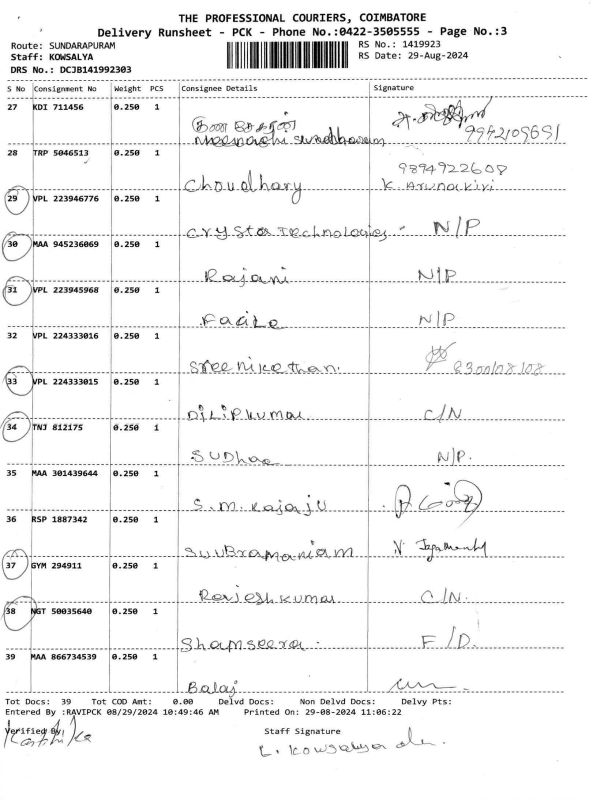 THE PROFESSIONAL COURIERS, COIMBATORE
Delivery Runsheet - PCK - Phone No.:0422-3505555 - Page No.:3
Route: SUNDARAPURAM RS No.: 1419923
Staff: KOWSALYA RS Date: 29-Aug-2024
DRS No.: DCJB141992303
S No Consignment No Weight PCS Consignee Details Signature
27 KDI 711456 0.250 1
9942109691
28 TRP 5046513 0.250 1 9894922608
Choudhary K. Arunakiri
29 VPL 223946776 0.250 1
Crystal Technologies - N/P
30 MAA 945236069 0.250 1
Rajani N/P
31 VPL 223945968 0.250 1
Facile N/P
32 VPL 224333016 0.250 1
Sreenikethan.
33 VPL 224333015 0.250 1
Dilipkumar C/N
34 TNJ 812175 0.250 1
Sudha N/P.
35 MAA 301439644 0.250 1
S.M. Rajaju
36 RSP 1887342 0.250 1
Suubramaniam
37 GYM 294911 0.250 1
Rajeshkumar C/N.
38 NGT 50035640 0.250 1
Shamseera. F/D.
39 MAA 866734539 0.250 1
Balaj
Tot Docs: 39 Tot COD Amt: 0.00 Delvd Docs: Non Delvd Docs: Delvy Pts:
Entered By :RAVIPCK 08/29/2024 10:49:46 AM Printed On: 29-08-2024 11:06:22
Verified By Staff Signature
Karthika L. Kowsalya